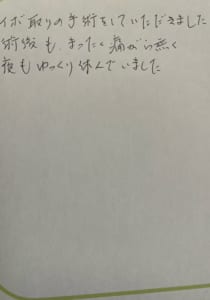 イボ取りの手術をしていただきました
術後も、まったく痛がら無く
夜もゆっくり休んでいました